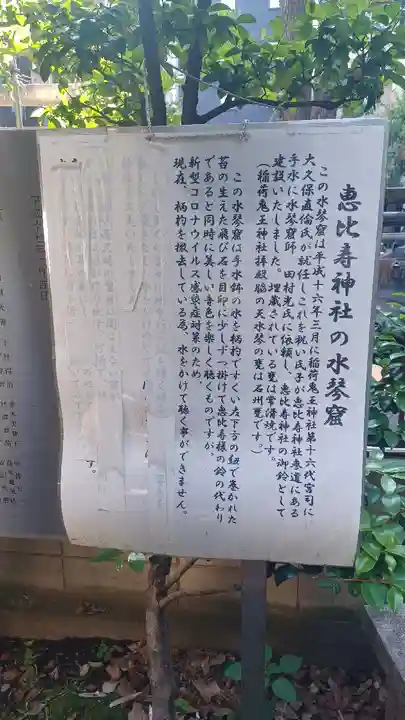 恵比寿神社の水琴窟
この水琴窟は平成十六年三月に稲荷鬼王神社第十六代宮司に
大久保直倫氏が就任しこれを祝い氏子が恵比寿神社参道にある
手水に水琴窟師 田村光氏に依頼し、恵比寿神社の御鈴として
建設いたしました。埋蔵されている甕は常滑焼です。
（稲荷鬼王神社拝殿脇の天水琴の甕は石州甕です。）
この水琴窟は手水鉢の水を柄杓ですくい左下方の紐で巻かれた
苔の生えた飛び石を目印に少しずつ掛けて恵比寿様の鈴の代わり
であると同時に美しい音色を楽しく聴くものですが、
新型コロナウイルス感染症対策のため
現在、柄杓を撤去している為、水をかけて聴く事ができません。